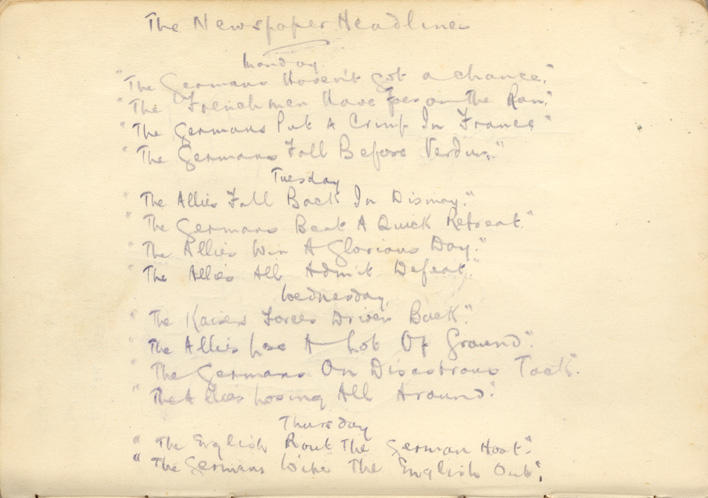 The Newspaper Headlines
Monday
"The Germans Haven't got a chance."
"The Frenchmen Have Foes on The Run."
"The Germans Put A Crimp In France"
"The Germans Fall Before Verdun."
Tuesday
"The Allies Fall Back In Dismay."
"The Germans Beat A Quick Retreat."
"The Allies Win A Glorious Day."
"The Allies All Admit Defeat."
Wednesday
"The Kaiser Forces Driven Back."
"The Allies Lose A Lot Of Ground."
"The Germans On Disastrous Tack".
"The Allies Losing All Around."
Thursday
"The English Rout The German Host."
"The Germans Wipe The English Out".